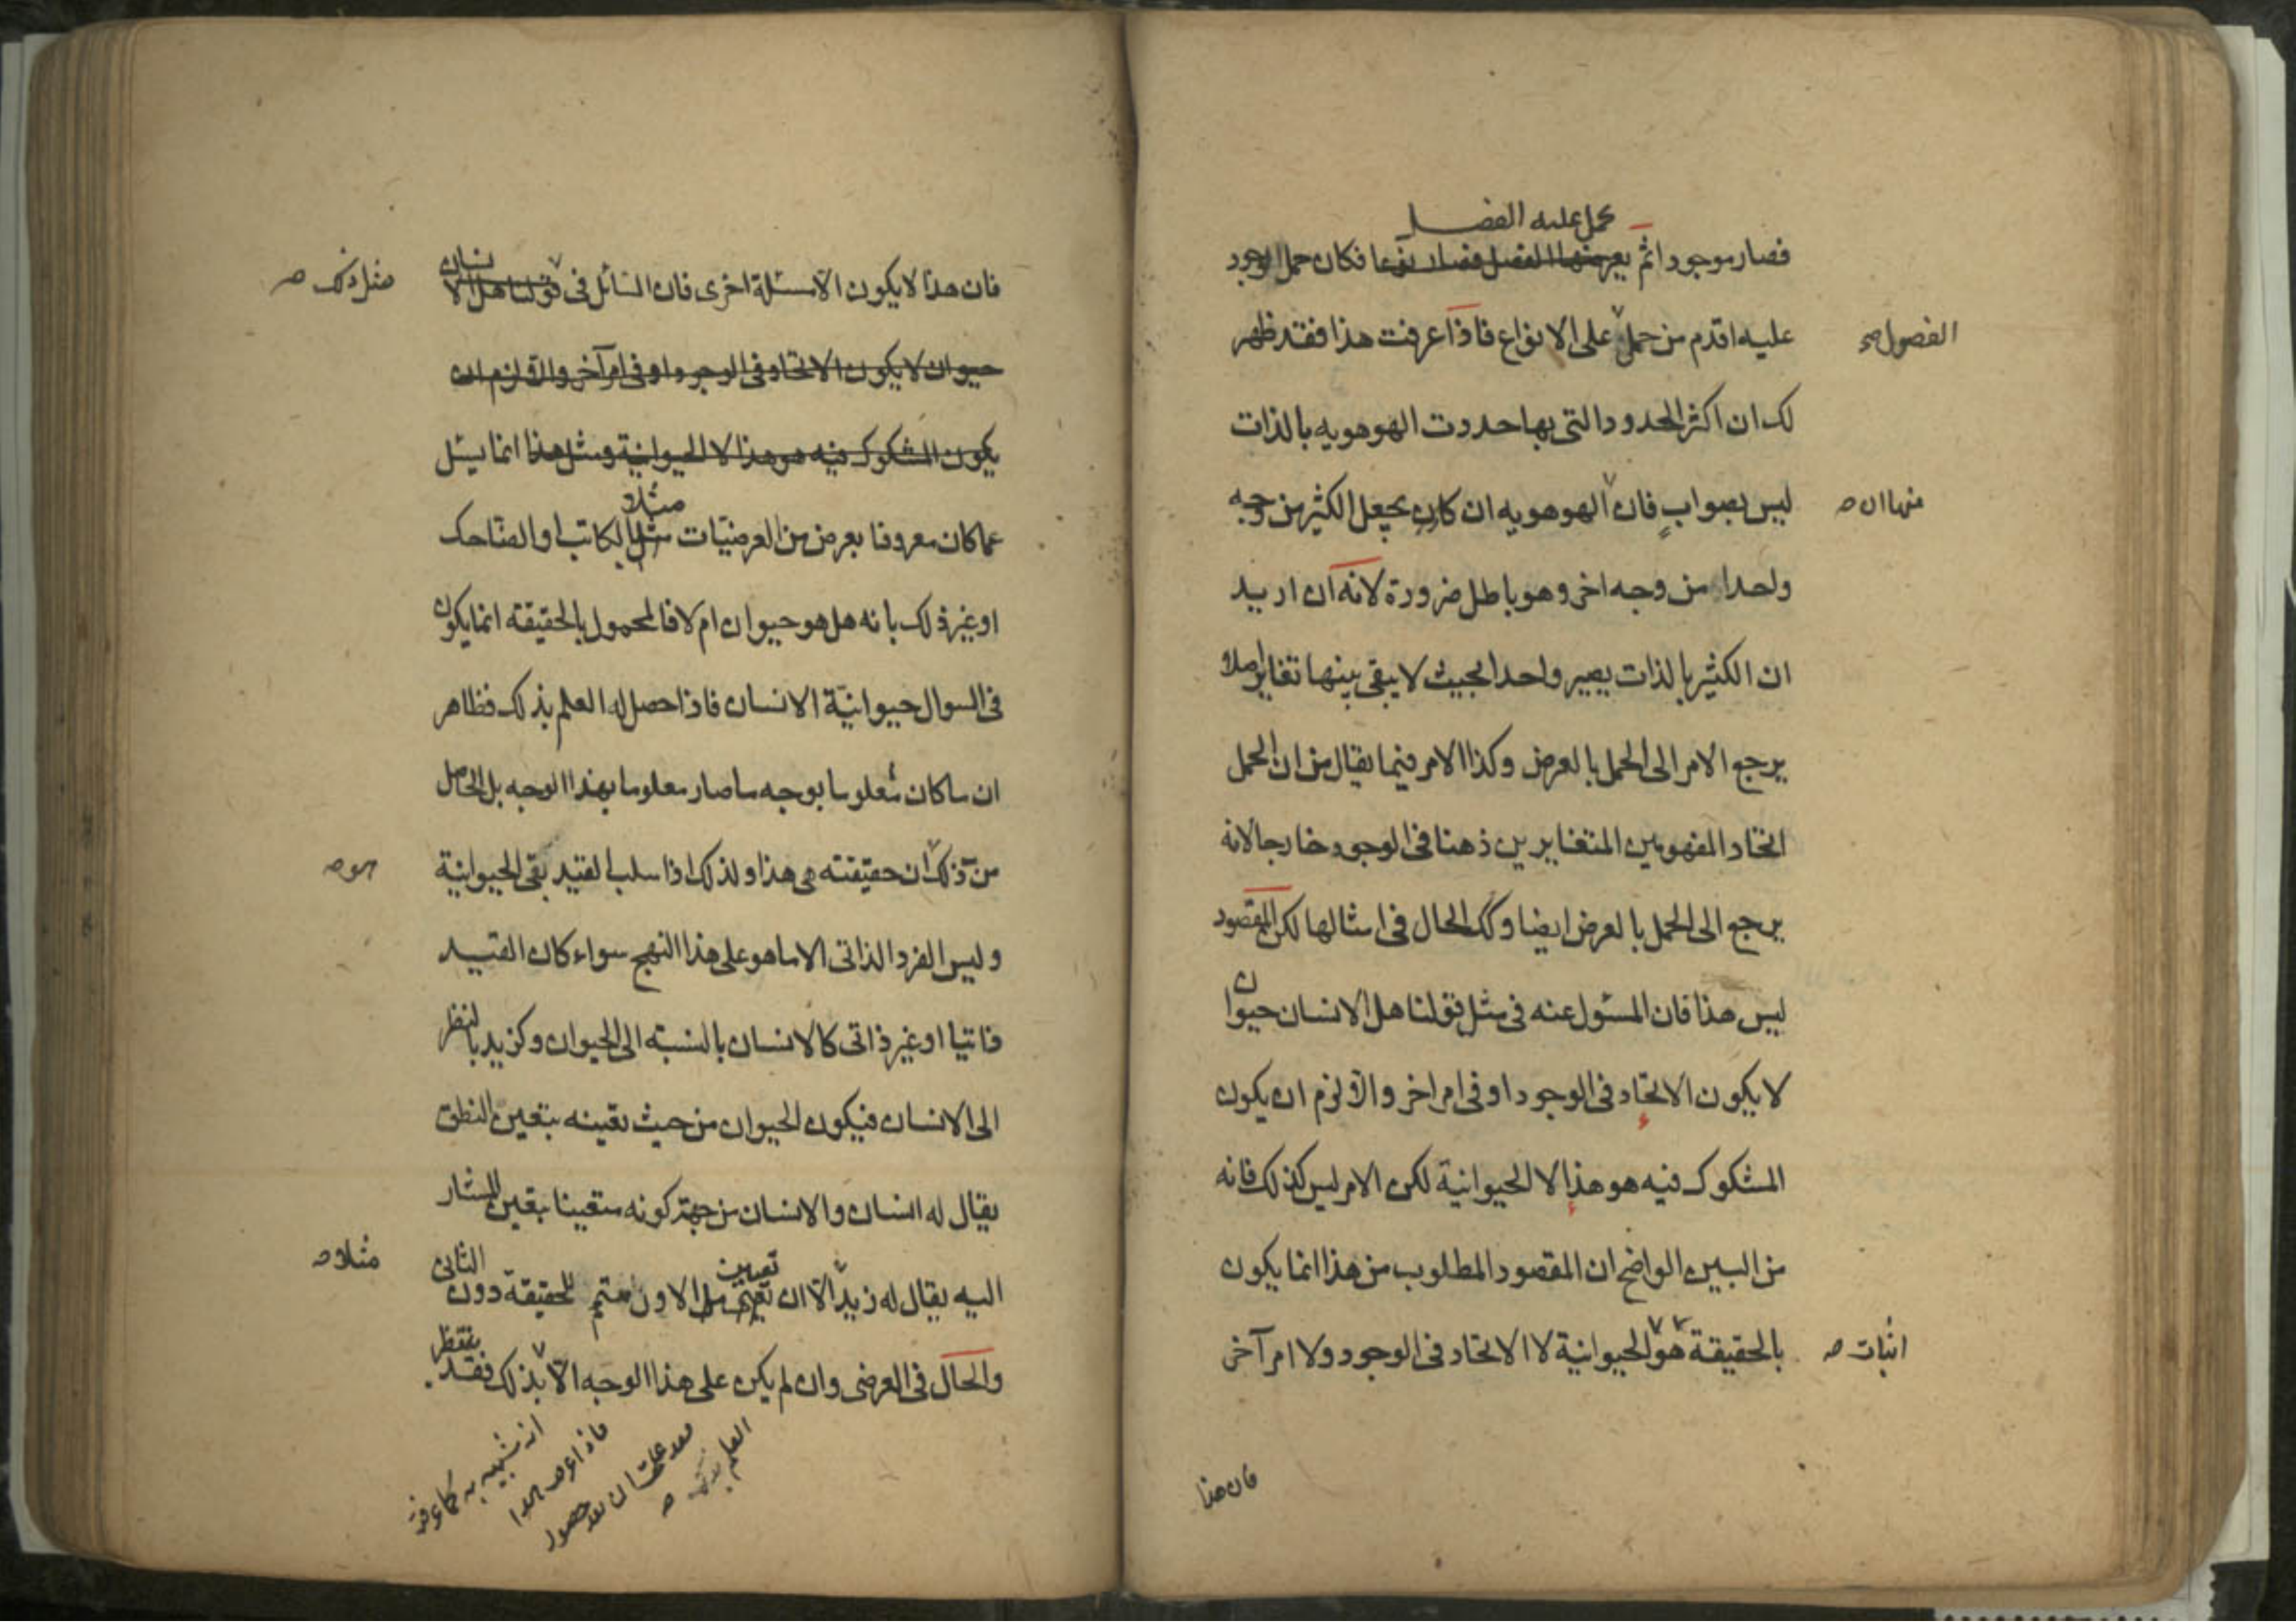 يحمل عليه الفصل
فصار موجودا ثم يعرضها الفصل فصار نوعا فكان حمل الوجود
عليه اقدم من حمل على الانواع فاذا عرفت هذا فقد ظهر
الفصول صح
لك ان اكثر الحدود التى بها حددت الهوهويه بالذات
ليس بصواب فان الهوهويه ان كان يجعل الكثير من وجه
منها ان ص
واحدا من وجه اخر وهو باطل ضرورة لانه ان اريد
ان الكثير بالذات يصير واحدا بحيث لا يبقى بينها تغاير اصلا
يرجع الامر الى الحمل بالعرض وكذا الامر فيما يقال من ان الحمل
اتحاد المفهومين المتغايرين ذهنا فى الوجود خارجا لانه
يرجع الى الحمل بالعرض ايضا وكك الحال فى امثالها لكن المقصود
ليس هذا فان المسئول عنه فى مثل قولنا هل الانسان حيوان
لا يكون الاتحاد فى الوجود او فى امر اخر والا لزم ان يكون
المشكوك فيه هو هذا لا الحيوانية لكن الامر ليس كذلك فانه
من البين الواضح ان المقصود المطلوب من هذا انما يكون
بالحقيقة هو الحيوانية لا الاتحاد فى الوجود ولا امر آخر
اثبات ص
فان هذا
فان هذا لا يكون الا مسئلة اخرى فان السائل فى قولنا هل الانسان
مثل ذلك ص
حيوان لا يكون الاتحاد فى الوجود او فى امر آخر والا لزم ان
يكون المشكوك فيه هو هذا لا الحيوانية ومثل هذا انما يسئل
عما كان معروفا بعرض من العرضيّات مثل الكاتب او الضاحك
مثلا
او غير ذلك بانه هل هو حيوان ام لا فالمحمول بالحقيقة انما يكون
فى السوال حيوانيّة الانسان فاذا حصل له العلم بذلك فظاهر
ان ما كان معلوما بوجه ما صار معلوما بهذا الوجه بل الحاصل
من ذلك ان حقيقته هى هذا ولذلك اذا سلب القيد بقى الحيوانية
وليس الفرد الذاتى الا ما هو على هذا النهج سواء كان القيد
ذاتيا او غير ذاتى كالانسان بالنسبة الى الحيوان وكزيد بالنظر
الى الانسان فيكون الحيوان من حيث تعينه بتعين النطق
يقال له انسان والانسان من جهة كونه متعينا بتعين المشار
اليه يقال له زيد الا ان تعين الاول متمم للحقيقة دون الثانى
مثلا ص
والحال فى العرضى وان لم يكن على هذا الوجه الا بذلك فقد